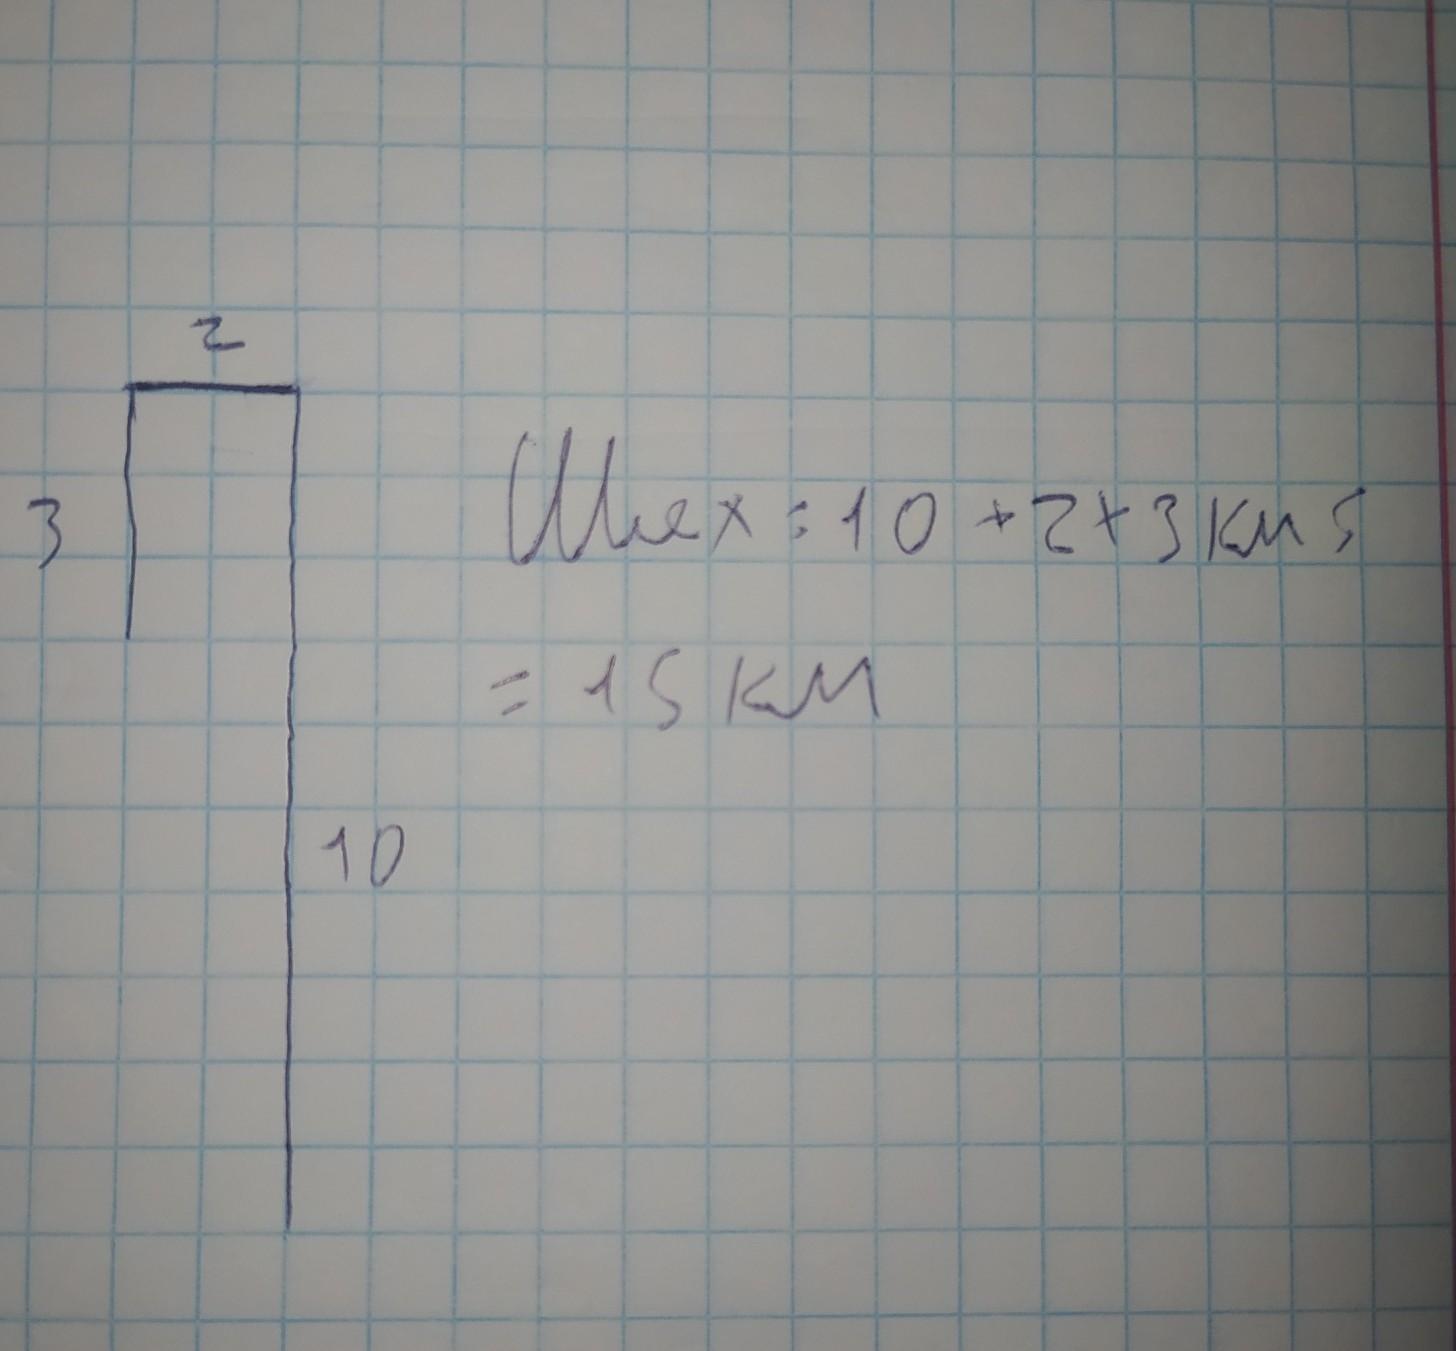 2
3
Шлях = 10 + 2 + 3 км =
= 15 км
10